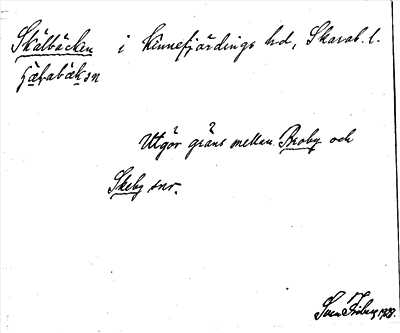 Skälbäcken i Kinnefjärdings hd, Skarab. l.
Utgör gräns mellan Broby och
Skeby snr.
Sven Friberg 1928.